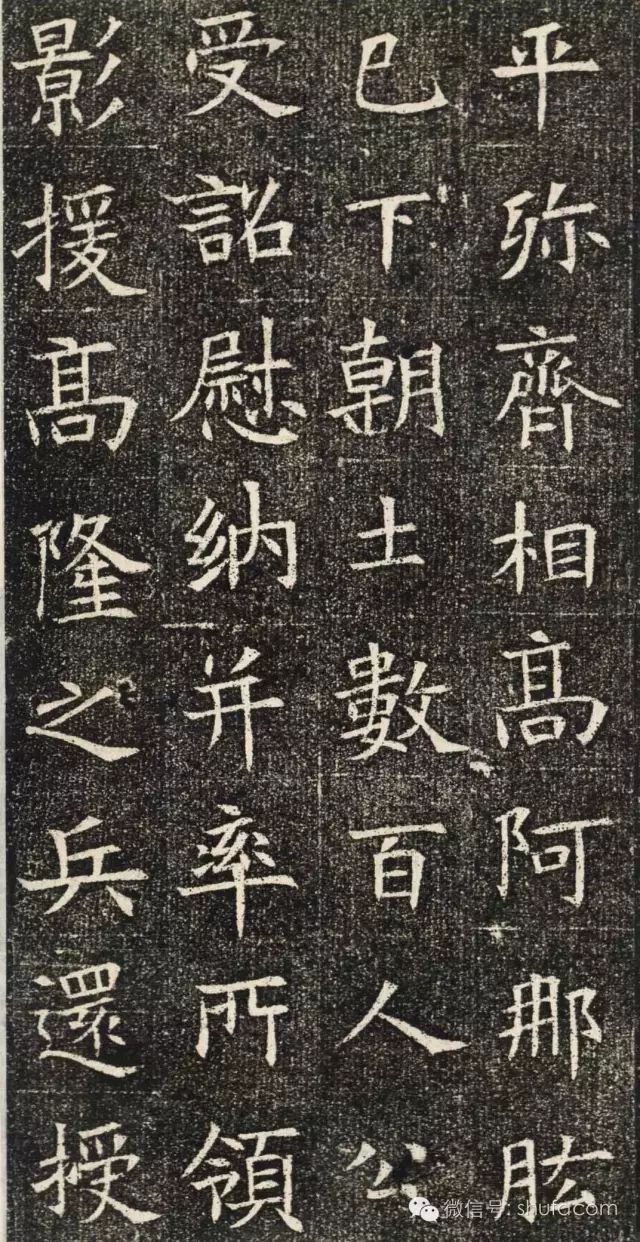 平殄齊相高阿那肱
已下朝士數百人公
受詔慰納并率所領
影援高隆之兵還授
微信号: shufacom